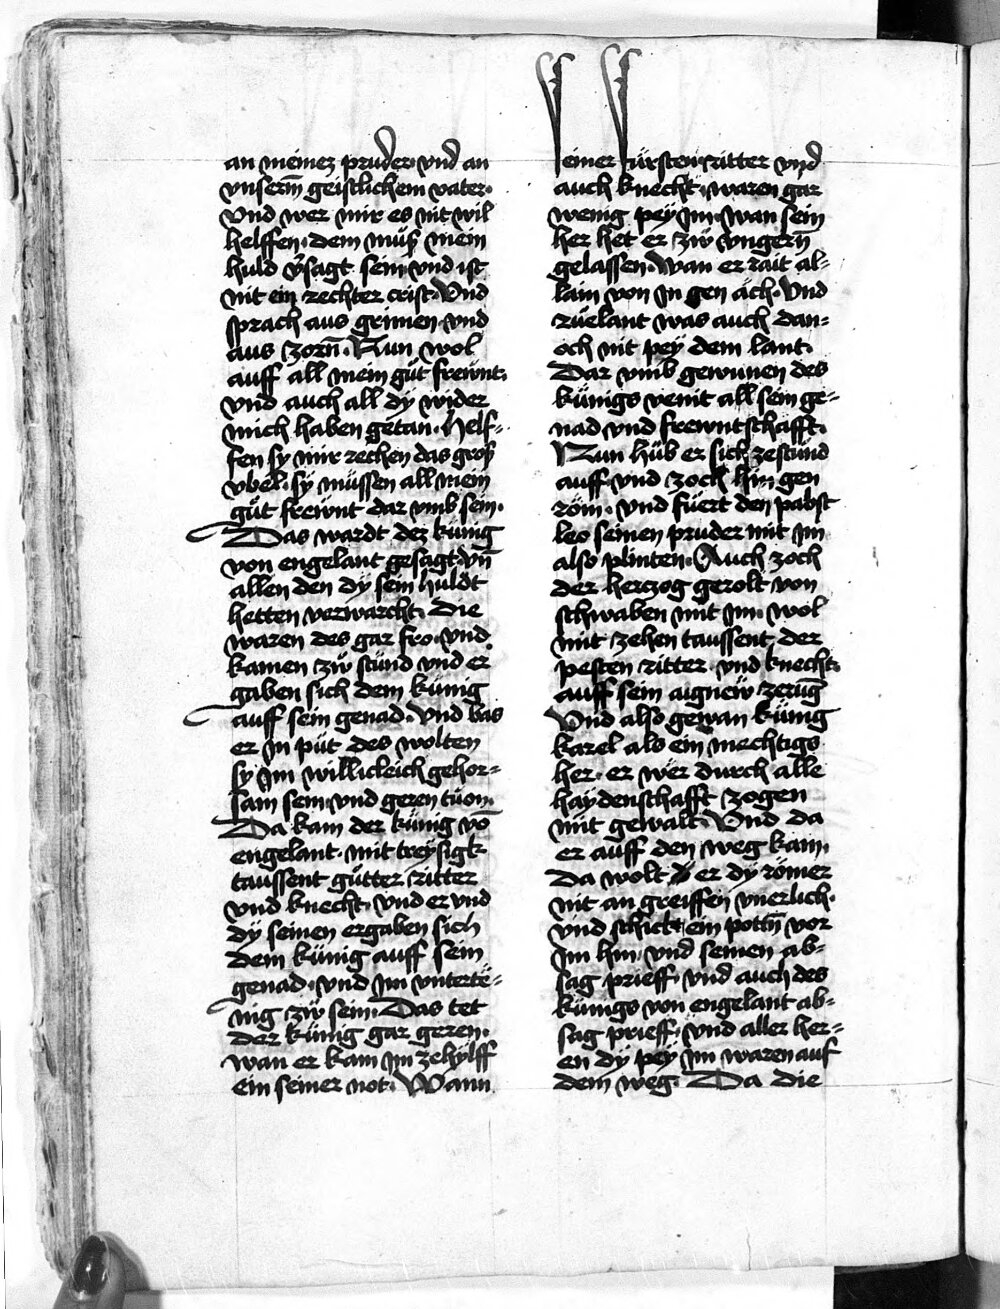 an meinez pruder. vnd an
vnserm̄ geistlichem vater.
Vnd wer mir es nit wil
helffen. dem müß mein
huld v̓sagt sein. vnd ist
nit ein rechter crist. Vnd
sprach aus grimen. vnd
aus zorn̄. Nun wol
auff all mein güt frewnt.
vnd auch all dy wider
mich haben getan. Helf-
fen sy mir rechen das groß
vbel. sy müssen all mein
güt frewnt dar vmb sein.
Das wardt dez künig
von engelant gesagt. vn̄
allen den dy sein huldt
hetten verwarcht. Die
waren des gar fro. vnd
kamen zw̋ stund vnd er
gaben sich dem künig
auff sein genad. Vnd bas
er jn püt des wolten
sy jm willicleich gehor-
sam sein. vnd geren tuon.
Da kam der künig vō
engelant. mit treysigk
taussent gutter ritter
vnd knecht. vnd er vnd
dy seinen ergaben sich
dem künig auff sein
genad. vnd jm vnterte-
nig zw̋ sein. Das tet
der künig gar geren.
wan er kam jm zehylff
ein seiner not. Wann
seiner fürsten. ritter vnd
auch knecht. waren gar
wenig pey jm. wan sein
her het er zw̋ vngern̄
gelassen. Wan er rait al-
lain von jn gen äch. Vnd
rüelant was auch dan-
och nit pey dem lant.
Dar vmb gewunen des
künigs venit all sein ge-
nad vnd frewntschafft.
Nun hüb er sich zestund
auff. vnd zoch hin gen
röm. vnd füert den pabst
leo seinen pruder mit jm
also plinten. Auch zoch
der herczog gerolt von
schwaben mit jm. wol
mit zehen taussent der
pesten ritter. vnd knecht.
auff sein aignew zerüg
Vnd also gewan künig
karel als ein mechtigs
her. er wer durch alle
haydenschafft zogen
mit gewalt. Vnd da
er auff den weg kam.
Da wolt er dy römer
nit an greiffen vnerlich.
vnd schickt ein pottn̄ vor
jm hin. vnd seinen ab-
sag prieff. vnd auch des
künigs von engelant ab-
sag prieff. vnd aller her-
en dy pey jm waren auf
dem weg. Da die